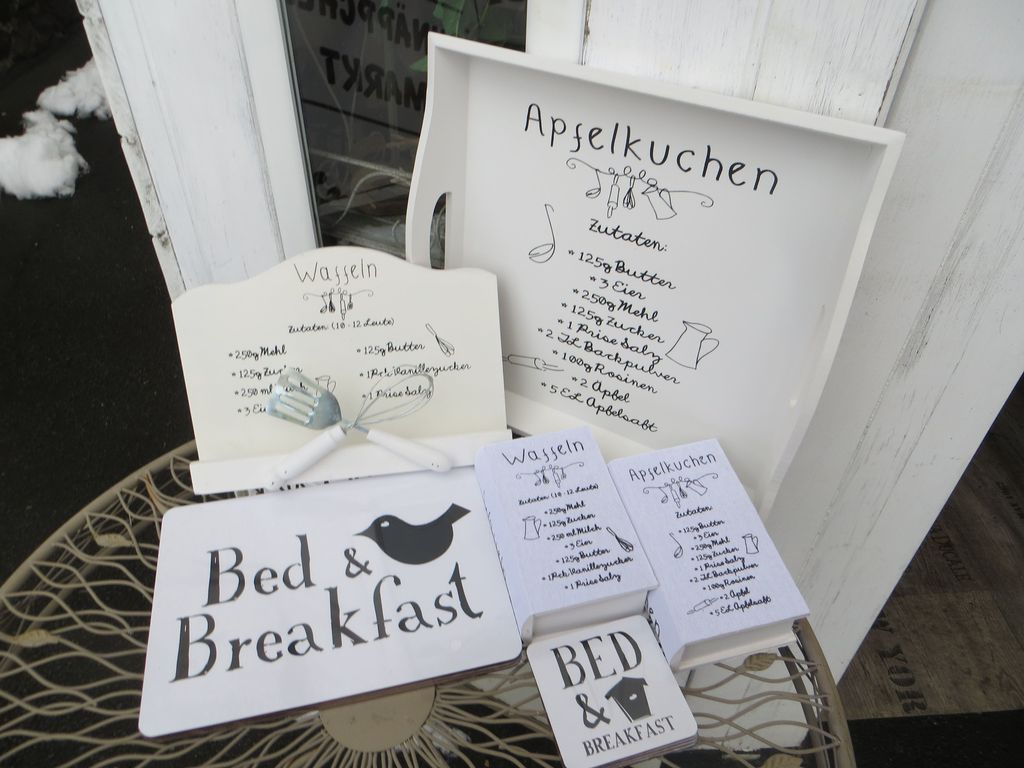 NÄPPCHE
MARKT
Apfelkuchen
Zutaten:
*125g Butter
*3 Eier
*250g Mehl
*125g Zucker
*1 Prise Salz
*2 TL Backpulver
*100g Rosinen
*2 Apbel
*5 EL Apbelsabt
Waffeln
Zutaten (10-12 Leute)
*250g Mehl
*125g Zucker
*250 ml
*3 Ei
*125g Butter
*1Pck Vanillezucker
*1 Prise Salz
Bed &
Breakfast
Waffeln
Zutaten (10-12 Leute)
*250g Mehl
*125g Zucker
*250 ml Milch
*3 Eier
*125g Butter
*1Pck Vanillezucker
*1 Prise Salz
Apfelkuchen
Zutaten
*125g Butter
*3 Eier
*250g Mehl
*125g Zucker
*1 Prise Salz
*2 TL Backpulver
*100g Rosinen
*2 Apbel
*5 EL Apbelsabt
BED
&
BREAKFAST
YOR